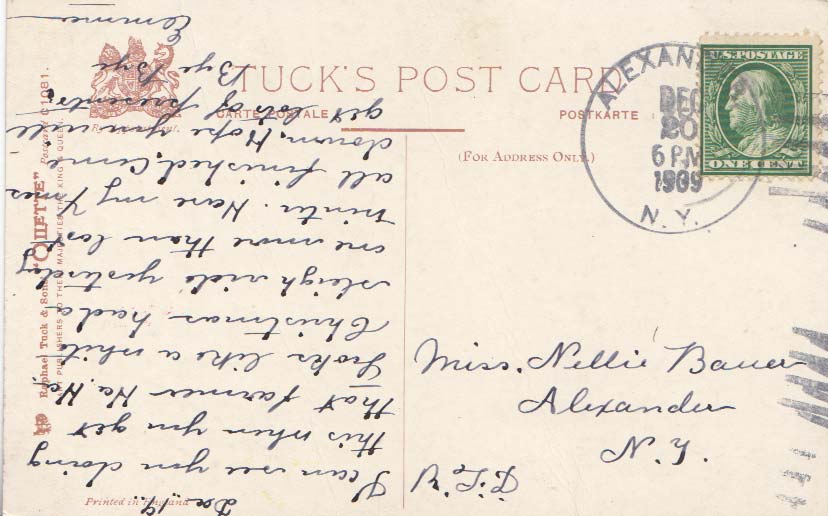 TUCK'S POST CARD
CARTE POSTALE
POSTKARTE
(FOR ADDRESS ONLY.)
ALEXANDER
DEC
20
6 P.M
1909
N.Y.
U.S. POSTAGE
ONE CENT
Miss. Nellie Bauer
Alexander
N.Y.
Dec 19.
I can see you doing
this when you get
that farmer Ha. Ha.
Looks like a white
Christmas had a
sleigh ride yesterday
one more than last
winter. Have my Xmas
all finished. Come
down. Hope you will
get lots of presents.
Bye Bye
Emma
Raphael Tuck & Sons' "OILETTE"
ART PUBLISHERS TO THEIR MAJESTIES THE KING & QUEEN.
Printed in England